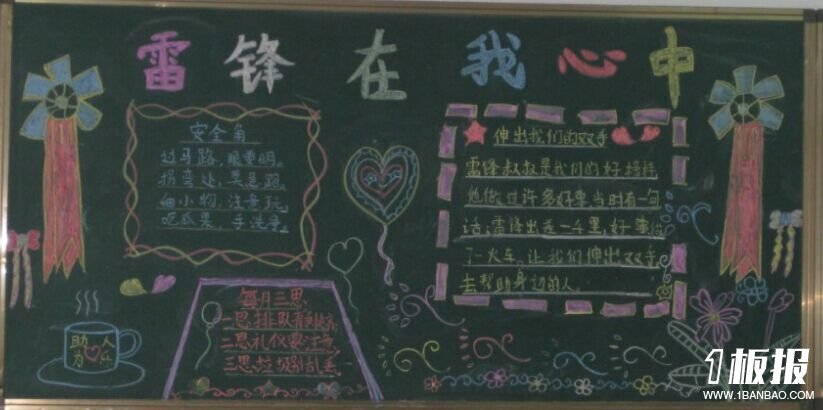 雷锋在我心中
安全角
过马路，眼要明。
拐弯处，莫急跑。
细小物，注意玩。
吃瓜果，手洗净。
伸出我们的双手
雷锋叔叔是我们的好榜样
他做过许多好事当时有一句
话，雷锋出差一千里，好事做
了一火车，让我们伸出双手
去帮助身边的人。
每月三思
一思排队有
二思礼仪要注意
三思垃圾别乱丢
助人
为乐
1板报
WWW.1BANBAO.COM